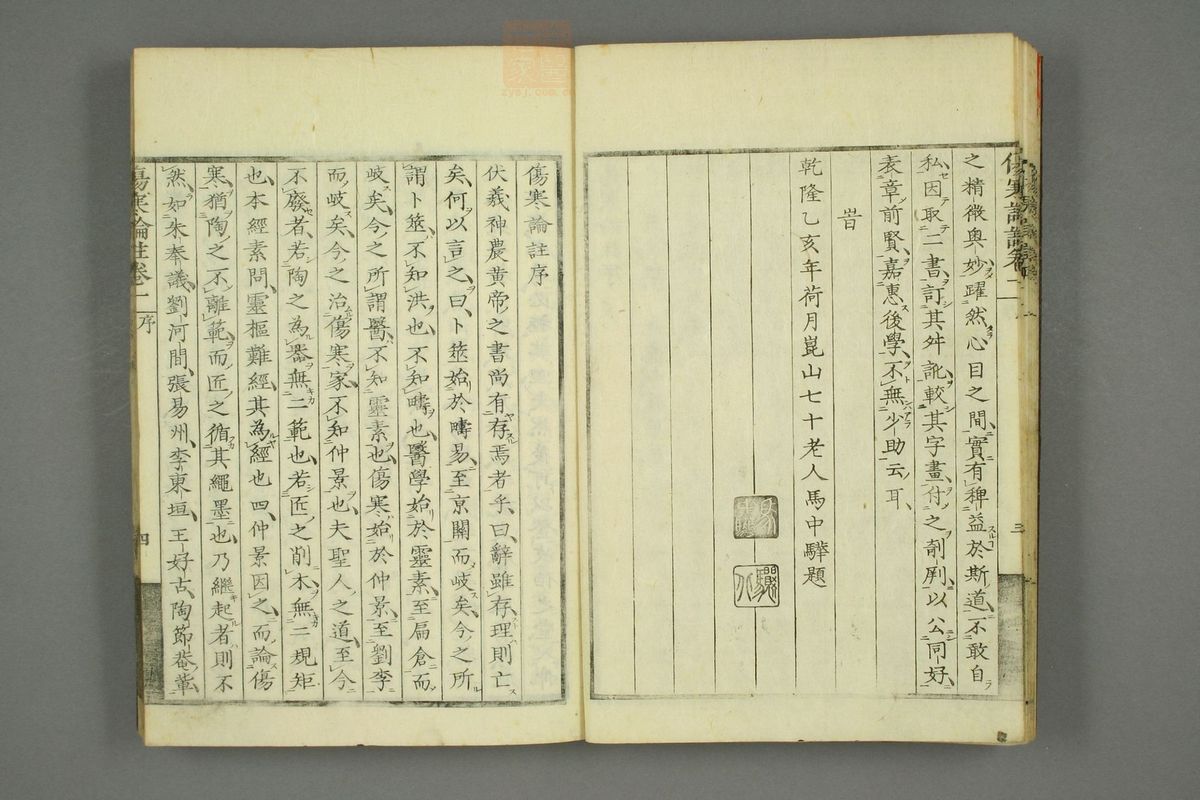 之精微奧妙躍然心目之間實有稗益於斯道不敢自
私因取二書訂其舛訛較其字畫付之剞劂以公同好
表章前賢嘉惠後學不無少助云耳
旹
乾隆乙亥年荷月崑山七十老人馬中驊題
傷寒論註序
伏羲神農黄帝之書尚有存焉者乎曰辭雖存理則亡
矣何以言之曰卜筮始於疇易至京關而岐矣今之所
謂卜筮不知洪也不知疇也醫學始於靈素至扁倉而
岐矣今之所謂醫不知靈素也傷寒始於仲景至劉李
而岐矣今之治傷寒家不知仲景也夫聖人之道至今
不廢者若陶之為器無二範也若匠之削木無二規矩
也本經素問靈樞難經其為經也四仲景因之而論傷
寒猶陶之不離範而匠之循其繩墨也乃繼起者則不
然如朱奉議劉河間張易州李東垣王好古陶節菴軰
傷寒論註卷一
序
四
三
zysj.com.cn